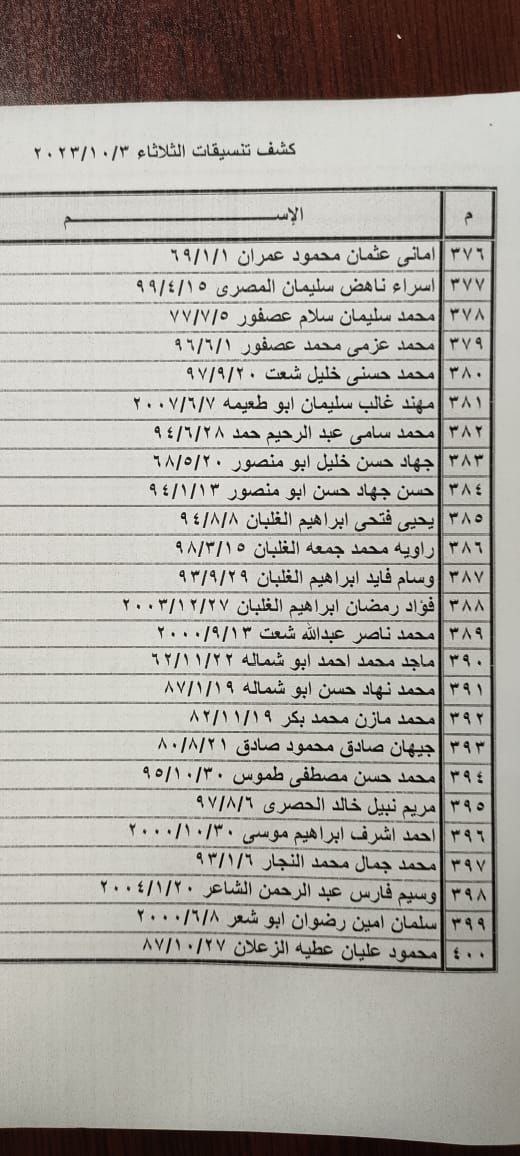 كشف تنسيقات الثلاثاء ٢٠٢٣/١٠/٣
م الإســـــــــــم
٣٧٦ امانى عثمان محمود عمران ٦٩/١/١
٣٧٧ اسراء ناهض سليمان المصرى ٩٩/٤/١٥
٣٧٨ محمد سليمان سلام عصفور ٧٧/٧/٥
٣٧٩ محمد عزمى محمد عصفور ٩٦/٦/١
٣٨٠ محمد حسنى خليل شعت ٩٧/٩/٢٠
٣٨١ مهند غالب سليمان ابو طعيمه ٢٠٠٧/٦/٧
٣٨٢ محمد سامى عبد الرحيم حمد ٩٤/٦/٢٨
٣٨٣ جهاد حسن خليل ابو منصور ٦٨/٥/٢٠
٣٨٤ حسن جهاد حسن ابو منصور ٩٤/١/١٣
٣٨٥ يحيى فتحى ابراهيم الغلبان ٩٤/٨/٨
٣٨٦ راويه محمد جمعه الغلبان ٩٨/٣/١٥
٣٨٧ وسام فايد ابراهيم الغلبان ٩٣/٩/٢٩
٣٨٨ فؤاد رمضان ابراهيم الغلبان ٢٠٠٣/١٢/٢٧
٣٨٩ محمد ناصر عبدالله شعت ٢٠٠٠/٩/١٣
٣٩٠ ماجد محمد احمد ابو شماله ٦٢/١١/٢٢
٣٩١ محمد نهاد حسن ابو شماله ٨٧/١/١٩
٣٩٢ محمد مازن محمد بكر ٨٢/١١/١٩
٣٩٣ جيهان صادق محمود صادق ٨٠/٨/٢١
٣٩٤ محمد حسن مصطفى طموس ٩٥/١٠/٣٠
٣٩٥ مريم نبيل خالد الحصرى ٩٧/٨/٦
٣٩٦ احمد اشرف ابراهيم موسى ٢٠٠٠/١٠/٣٠
٣٩٧ محمد جمال محمد النجار ٩٣/١/٦
٣٩٨ وسيم فارس عبد الرحمن الشاعر ٢٠٠٤/١/٢٠
٣٩٩ سلمان امين رضوان ابو شعر ٢٠٠٠/٦/٨
٤٠٠ محمود عليان عطيه الزعلان ٨٧/١٠/٢٧